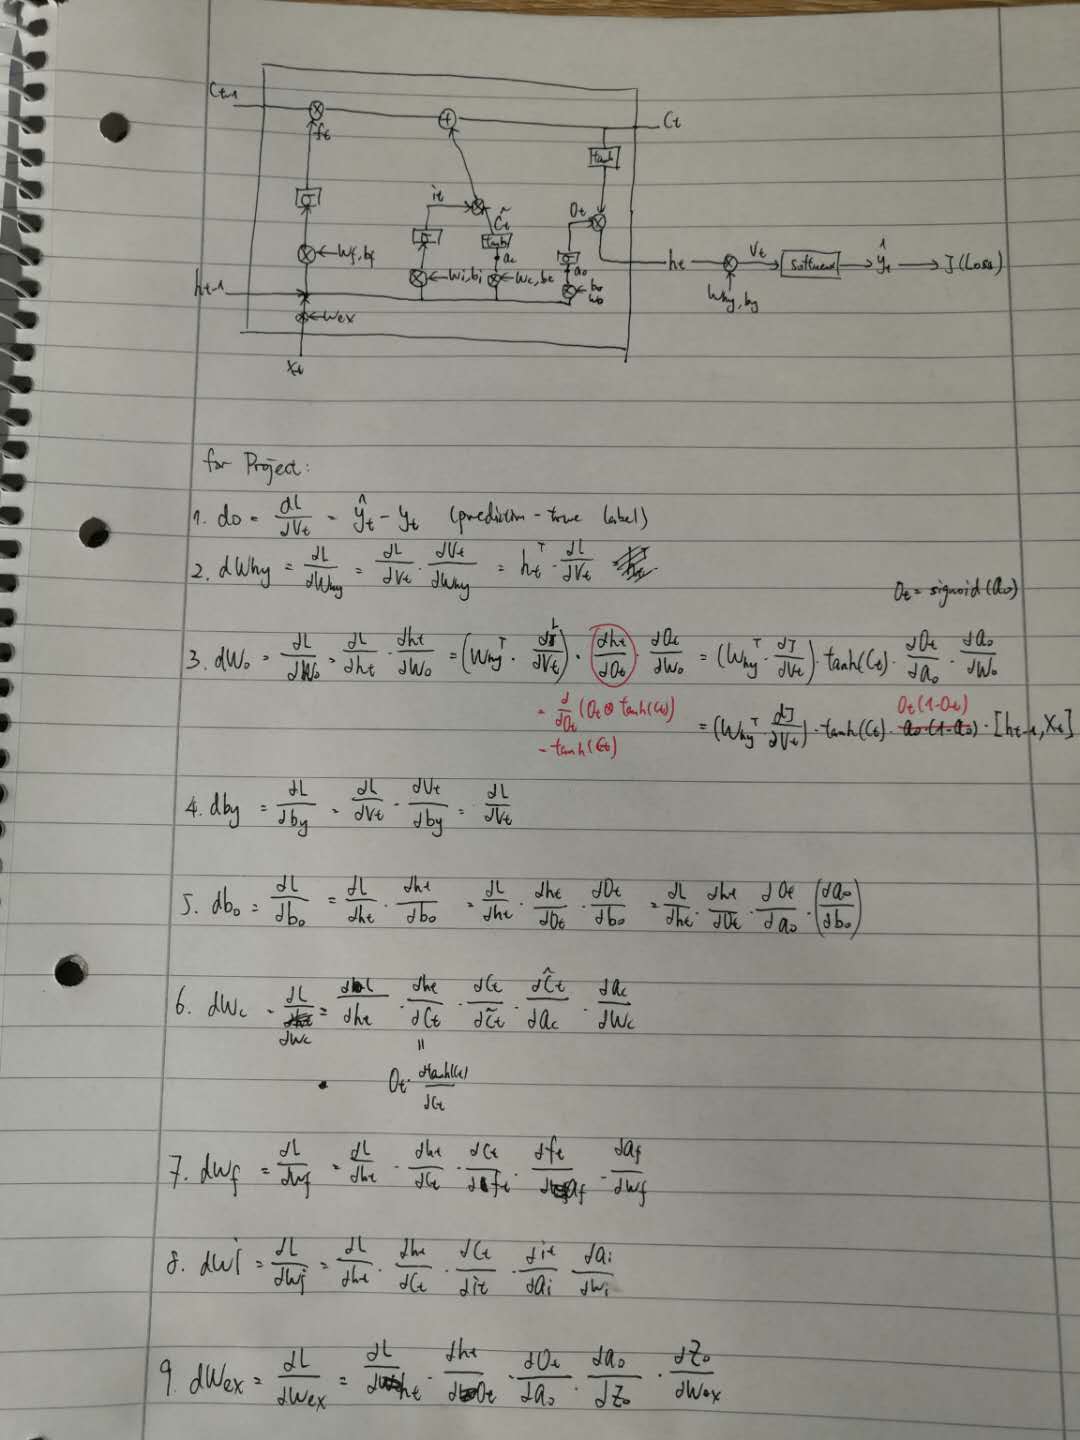 Ct-1
Ct
ft
tanh
it
Ot
σ
C̃t
σ
tanh
ac
σ
ao
Wf, bf
Wi, bi
Wc, bc
bo
Wo
ht-1
ht
Vt
softmax
ŷt
J (Loss)
Why, by
Wex
Xt
for Project:
1. do = dL/dVt = ŷt - yt (prediction - true label)
2. dWhy = dL/dWhy = dL/dVt · dVt/dWhy = ht^T · dL/dVt
Ot = sigmoid(ao)
3. dWo = dL/dWo = dL/dht · dht/dWo = (Why^T · dL/dVt) · dht/dOt · dOt/dWo = (Why^T · dJ/dVt) · tanh(Ct) · dOt/dao · dao/dWo
= d/dOt (Ot ⊗ tanh(Ct))
= tanh(Ct)
Ot(1-Ot)
= (Why^T · dJ/dVt) · tanh(Ct) · ao·(1-ao) · [ht-1, Xt]
4. dby = dL/dby = dL/dVt · dVt/dby = dL/dVt
5. dbo = dL/dbo = dL/dht · dht/dbo = dL/dht · dht/dOt · dOt/dbo = dL/dht · dht/dOt · dOt/dao · (dao/dbo)
6. dWc = dL/dWc = dL/dht · dht/dCt · dCt/dC̃t · dĈt/dac · dac/dWc
=
Ot · dtanh(Ct)/dCt
7. dWf = dL/dWf = dL/dht · dht/dCt · dCt/dft · dft/daf · daf/dWf
8. dWi = dL/dWi = dL/dht · dht/dCt · dCt/dit · dit/dai · dai/dWi
9. dWex = dL/dWex = dL/dht · dht/dOt · dOt/dao · dao/dZo · dZo/dWex